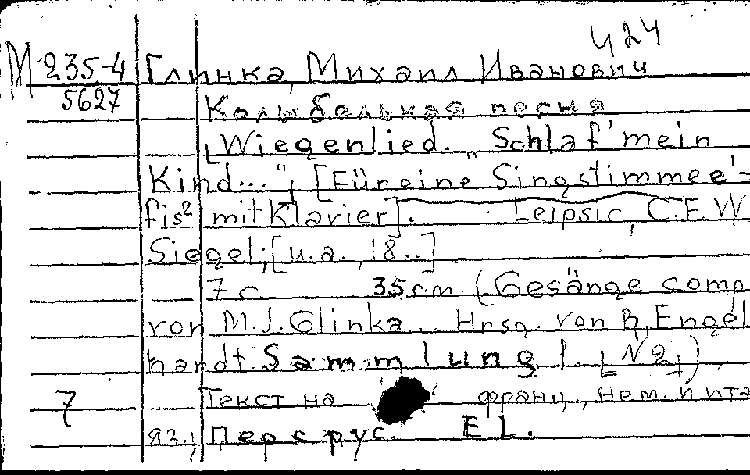 424
М 235-4 Глинка, Михаил Иванович
5627 Колыбельная песня
[Wiegenlied. „Schlaf' mein
Kind..."; [Für eine Singstimme e'-
fis² mit Klavier]. Leipsic, C.F.W.
Siegel; [u.a., 18..]
7 с. 35 cm (Gesänge comp.
von M.J. Glinka... Hrsg. von B. Engel
hardt. Sammlung I. [N 2])
7 Текст на франц., нем. и ита
яз., Пер с рус. E L.